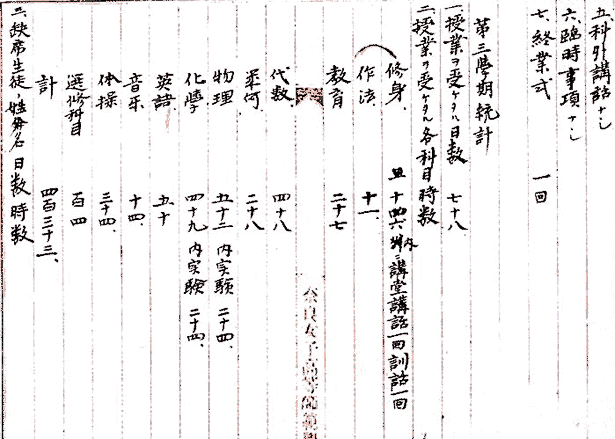 五、科外講話ナシ
六、臨時事項ナシ
七、終業式 一回
第三學期統計
一、授業ヲ受ケタル日数 七十八
二、授業ヲ受ケタル各科目時数
修身 十六 外ニ講堂講話一回訓話一回
作法 十一
教育 二十七
奈良女子高等師範
代数 四十八
幾何 二十八
物理 五十二 内実験 二十四、
化學 四十九 内実験 二十四、
英語 五十
音楽 十四、
体操 三十四、
選修科目 百四
計 四百三十三、
二、缺席生徒ノ姓名 日数 時数